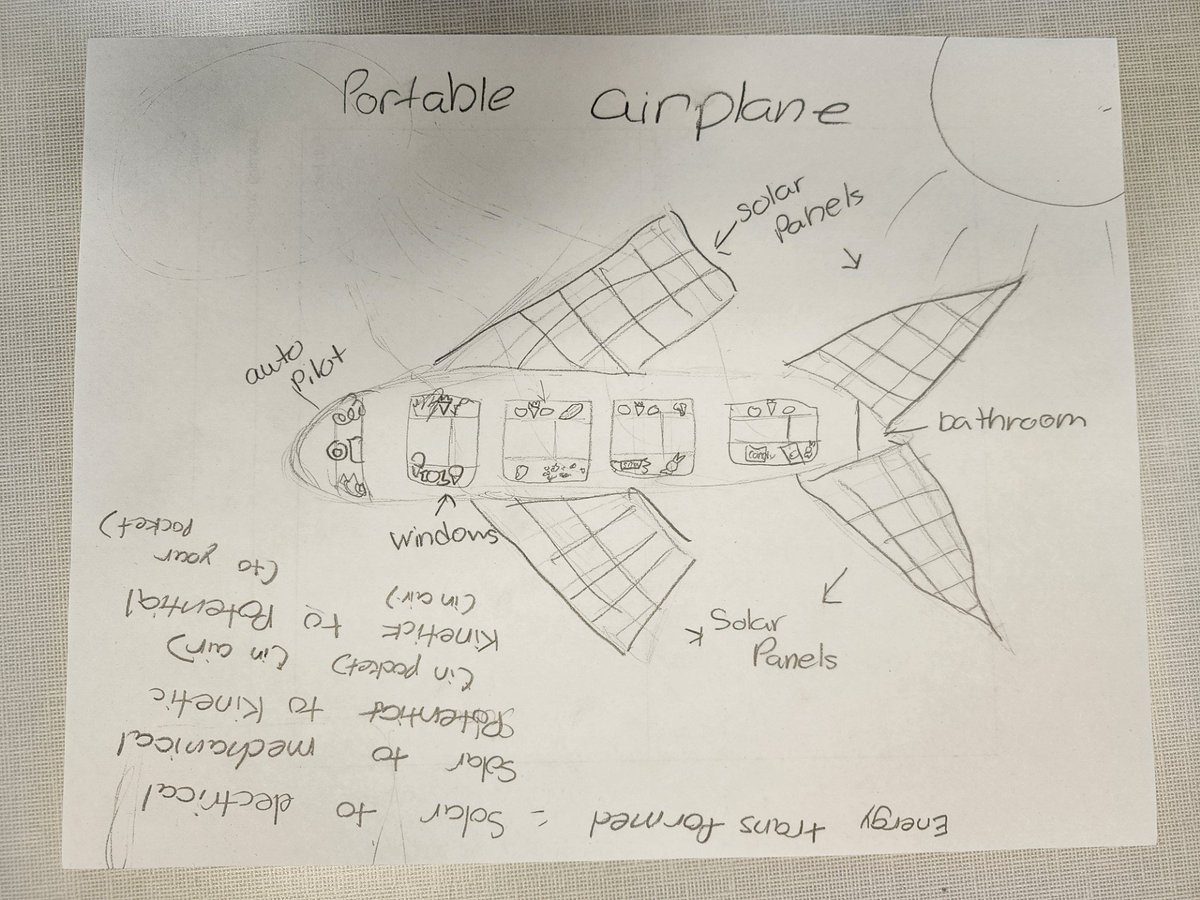 Portable airplane
solar
Panels
auto
Pilot
bathroom
windows
Solar
Panels
candy
Energy transformed = Solar to electrical
Solar to mechanical
Potential to Kinetic
(in pocket) (in air)
Kinetick to Potential
(in air) (to your
pocket)